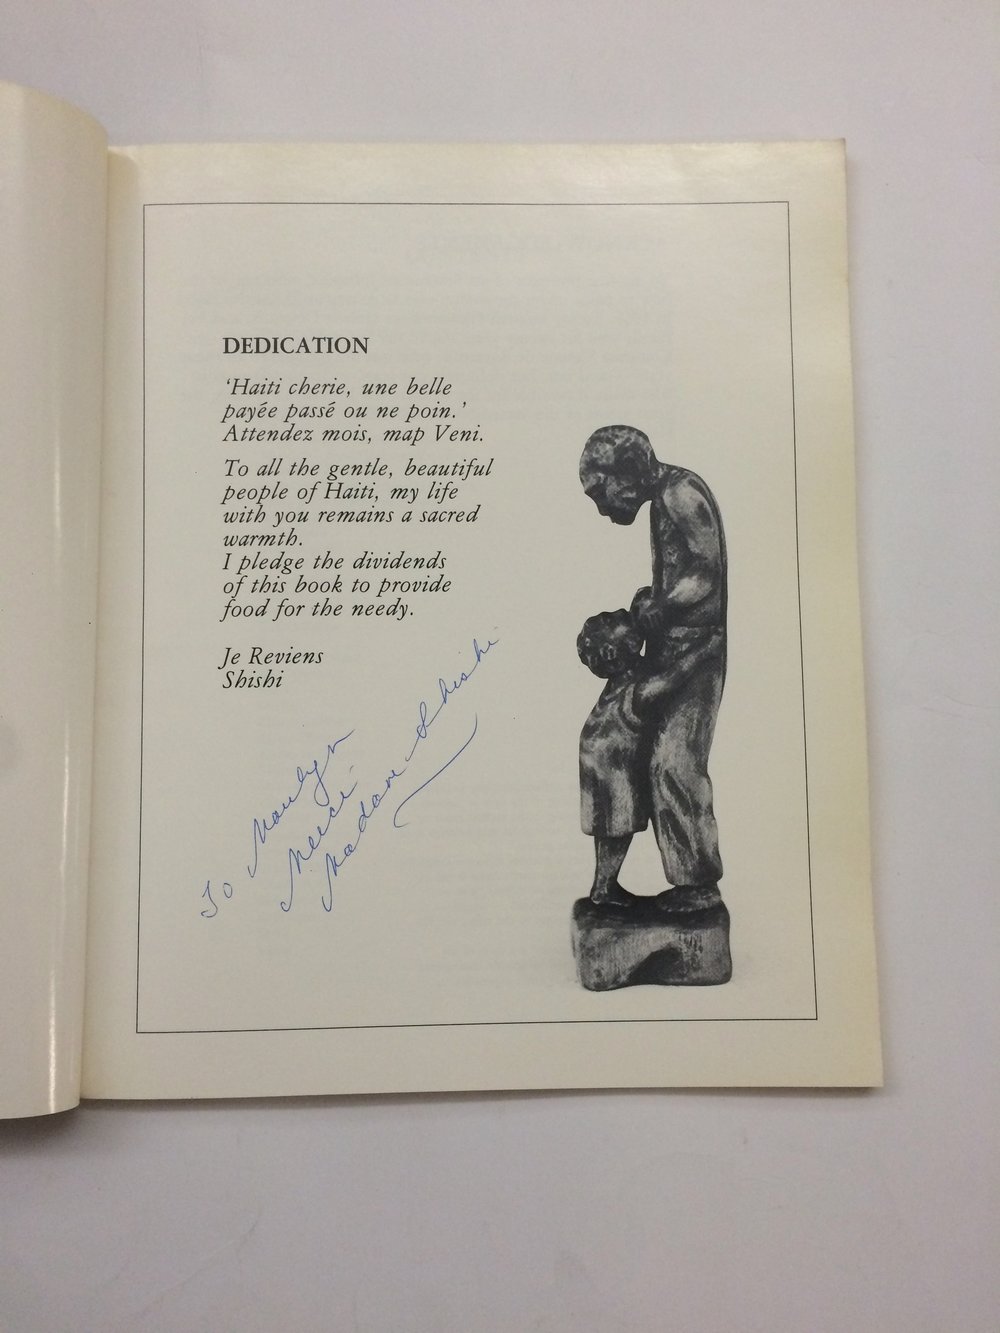 DEDICATION
‘Haiti cherie, une belle
payée passé ou ne poin.’
Attendez mois, map Veni.
To all the gentle, beautiful
people of Haiti, my life
with you remains a sacred
warmth.
I pledge the dividends
of this book to provide
food for the needy.
Je Reviens
Shishi
To
Merci
Madame Shishi